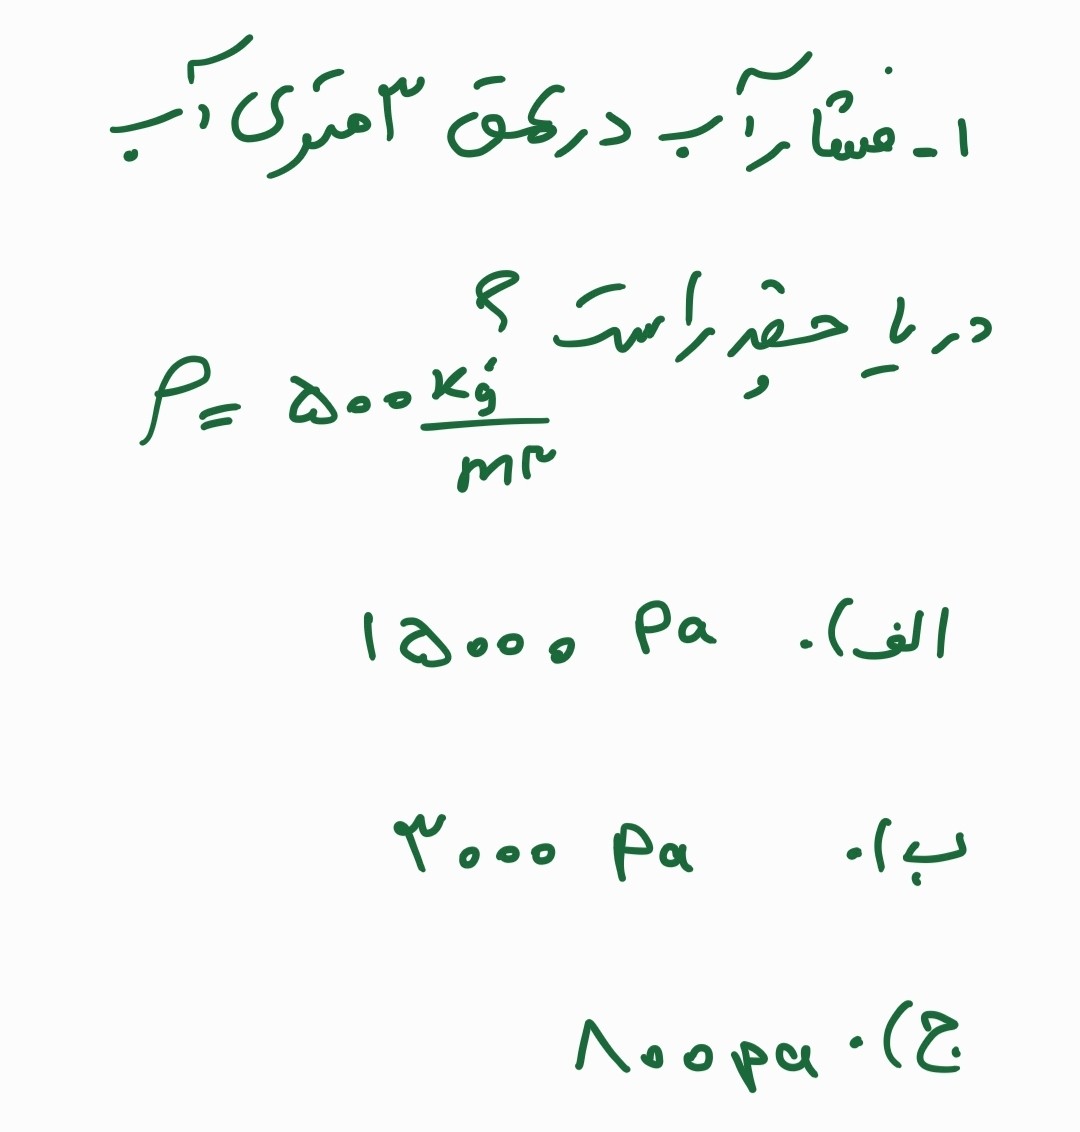 ۱ـ فشار آب در عمق ۳ متری آب
دریا چقدر است ؟
ρ = ۵۰۰ kg/m۳
الف). ۱۵۰۰۰ Pa
ب). ۳۰۰۰ Pa
ج). ۸۰۰ pa